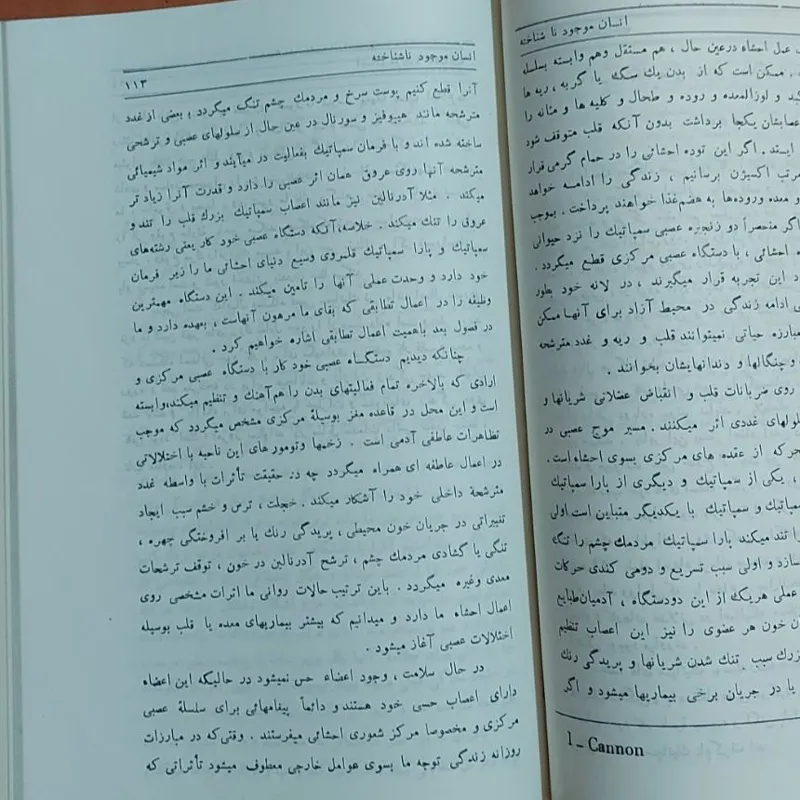 انسان موجود نا شناخته
عمل احشاء درعین حال ، هم مستقل وهم وابسته بسلسله
. ممکن است که از بدن یك سگ یا گربه ، ریه ها
کبد و لوزالمعده و روده و طحال و کلیه ها و مثانه را
عصابشان یکجا برداشت بدون آنکه قلب متوقف شود
ایستد . اگر این توده احشائی را در حمام گرمی قرار
مرتب اکسیژن برسانیم ، زندگی را ادامه خواهد
و معده وروده‌ها به هضم‌غذا خواهند پرداخت . بموجب
اگر منحصراً دو زنجیره عصبی سمپاتیك را نزد حیوانی
احشائی ، با دستگاه عصبی مرکزی قطع میگردد .
د این تجربه قرار میگیرند ، در لانه خود بطور
ادامه زندگی در محیط آزاد برای آنهـا ممکن
مبارزه حیاتی نمیتوانند قلب و ریه و غدد مترشحه
و چنگالها و دندانهایشان بخوانند .
روی ضربانات قلب و انقباض عضلانی شریانها و
سلولهای غددی اثر میکنند . مسیر موج عصبی در
که از عقده های مرکزی بسوی احشاء است .
، یکی از سمپاتیك و دیگری از پارا سمپاتیك
سمپاتیك و سمپاتیك با یکدیگر متباین است اولی
را تند میکند پارا سمپاتیك مردمك چشم را تنگ
سازد و اولی سبب تسریع و دومی کندی حرکات
عملی هریك از این دودستگاه ، آدمیان‌طبایع
خون هر عضوی را نیز این اعصاب تنظیم
بزرك سبب تنك شدن شریانها و پریدگی رنك
یا در جریان برخی بیماریها میشود و اگر
1 - Cannon
انسان موجود ناشناخته
۱۱۳
آنرا قطع کنیم پوست سرخ و مردمك چشم تنگ میگردد ؛ بعضی از غدد
مترشحه مانند هیپوفیز و سورنال در عین حال از سلولهای عصبی و ترشحی
ساخته شده اند و با فرمان سمپاتیك بفعالیت در میآیند و اثر مواد شیمیائی
مترشحه آنها روی عروق همان اثر عصبی را دارد و قدرت آنرا زیاد تر
میکند . مثلا آدرنالین نیز مانند اعصاب سمپاتیك بزرك قلب را تند و
عروق را تنك میکند . خلاصه،آنکه دستگاه عصبی خود کار یعنی رشته‌های
سمپاتیك و پارا سمپاتیك قلمروی وسیع دنیای احشائی ما را زیر فرمان
خود دارد و وحدت عملی آنها را تامین میکند . این دستگاه مهمترین
وظیفه را در اعمال تطابقی که بقای ما مرهون آنهاست ، بعهده دارد و ما
در فصول بعد باهمیت اعمال تطابقی اشاره خواهیم کرد .
چنانکه دیدیم دستگـاه عصبی خود کار با دستگاه عصبی مرکزی و
ارادی که بالاخره تمام فعالیتهای بدن را هم‌آهنك و تنظیم میکند،وابسته
است و این محل در قاعده مغز بوسیلهٔ مرکزی مشخص میگردد که موجب
تظاهرات عاطفی آدمی است . زخمها وتومورهای این ناحیه با اختلالاتی
در اعمال عاطفه ای همراه میگردد چه در حقیقت تأثرات با واسطه غدد
مترشحهٔ داخلی خود را آشکار میکند . خجلت ، ترس و خشم سبب ایجاد
تغییراتی در جریان خون محیطی ، پریدگی رنك یا بر افروختگی چهره ،
تنگی یا گشادی مردمك چشم ، ترشح آدرنالین در خون ، توقف ترشحات
معدی وغیره میگردد . باین ترتیب حالات روانی ما اثرات مشخصی روی
اعمال احشاء ما دارد و میدانیم که بیشتر بیماریهای معده یا قلب بوسیله
اختلالات عصبی آغاز میشود .
در حال سلامت ، وجود اعضاء حس نمیشود در حالیکه این اعضاء
دارای اعصاب حسی خود هستند و دائماً پیغامهائی برای سلسلهٔ عصبی
مرکزی و مخصوصا مرکز شعوری احشائی میفرستند . وقتی‌که در مبارزات
روزانه زندگی توجه ما بسوی عوامل خارجی معطوف میشود تأثراتی که